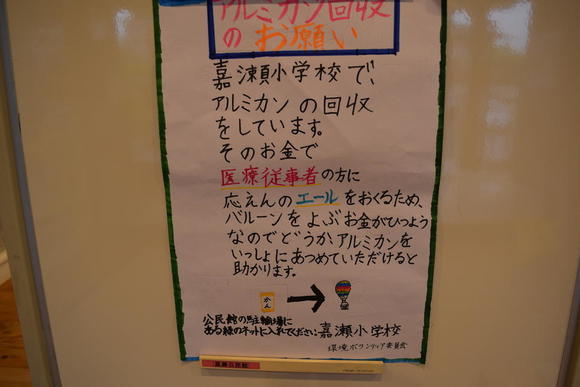 アルミカン回収
のお願い
嘉瀬小学校で、
アルミカンの回収
をしています。
そのお金で
医療従事者の方に
応えんのエールをおくるため、
バルーンをよぶお金がひつよう
なのでどうか、アルミカンを
いっしょにあつめていただけると
助かります。
かん
公民館の駐輪場に
ある緑のネットに入れてください
嘉瀬小学校
環境ボランティア委員会
嘉瀬公民館